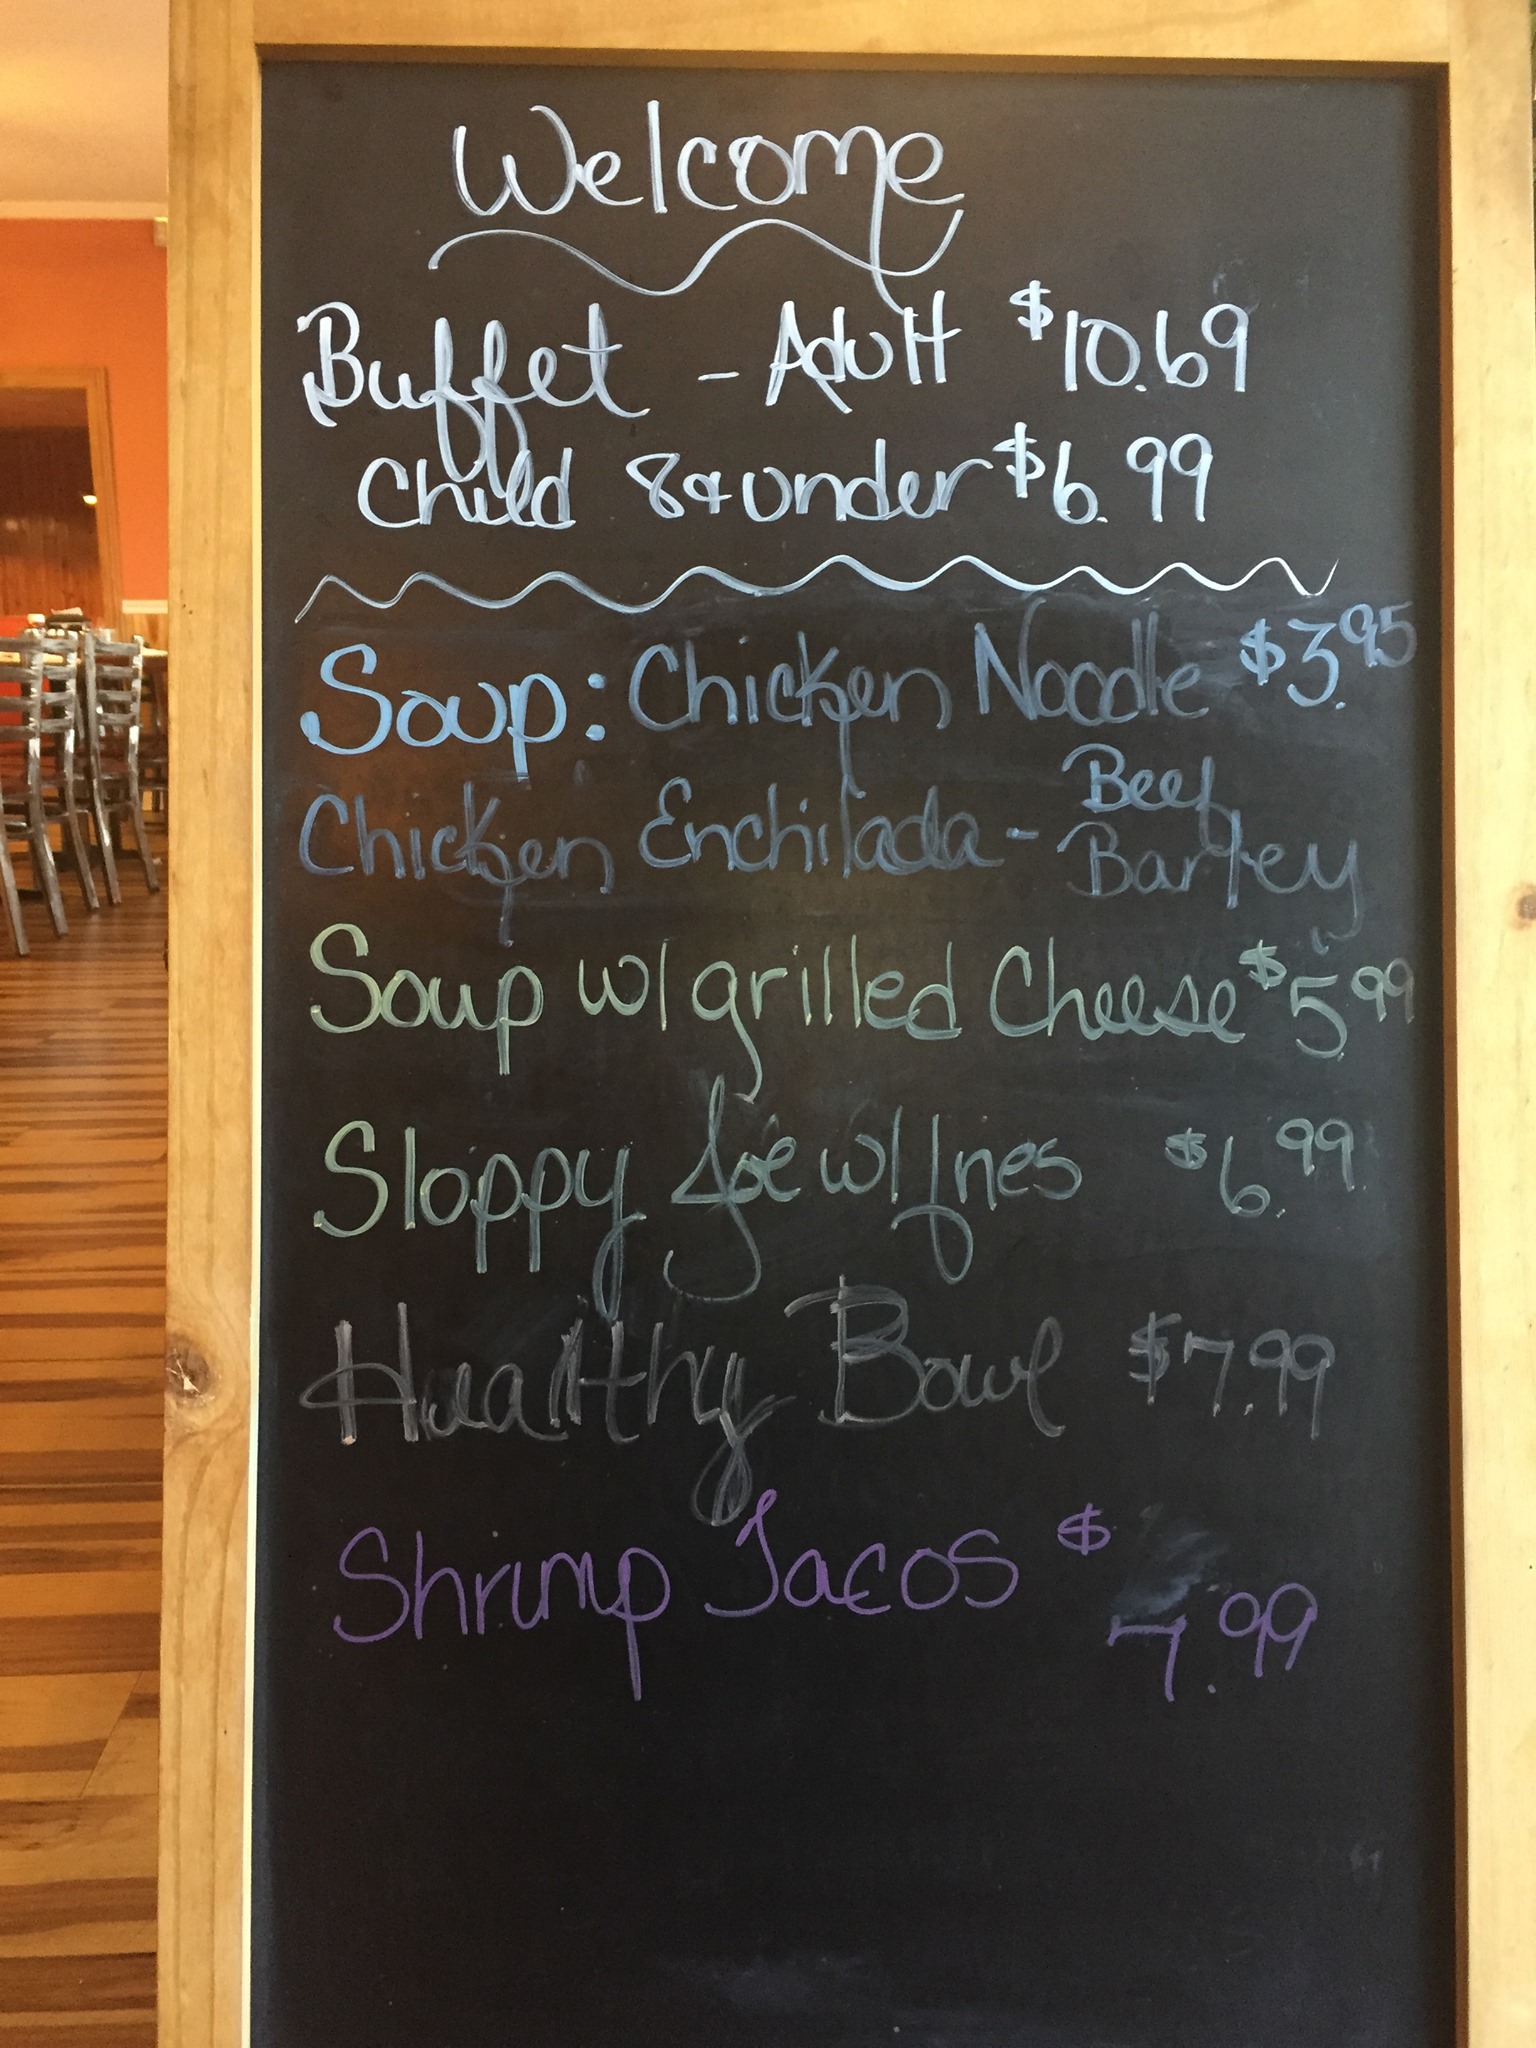 Welcome
Buffet - Adult $10.69
Child 8 & under $6.99
Soup: Chicken Noodle $3.95
Chicken Enchilada - Beef Barley
Soup w/ grilled Cheese $5.99
Sloppy Joe w/ fries $6.99
Healthy Bowl $7.99
Shrimp Tacos $7.99